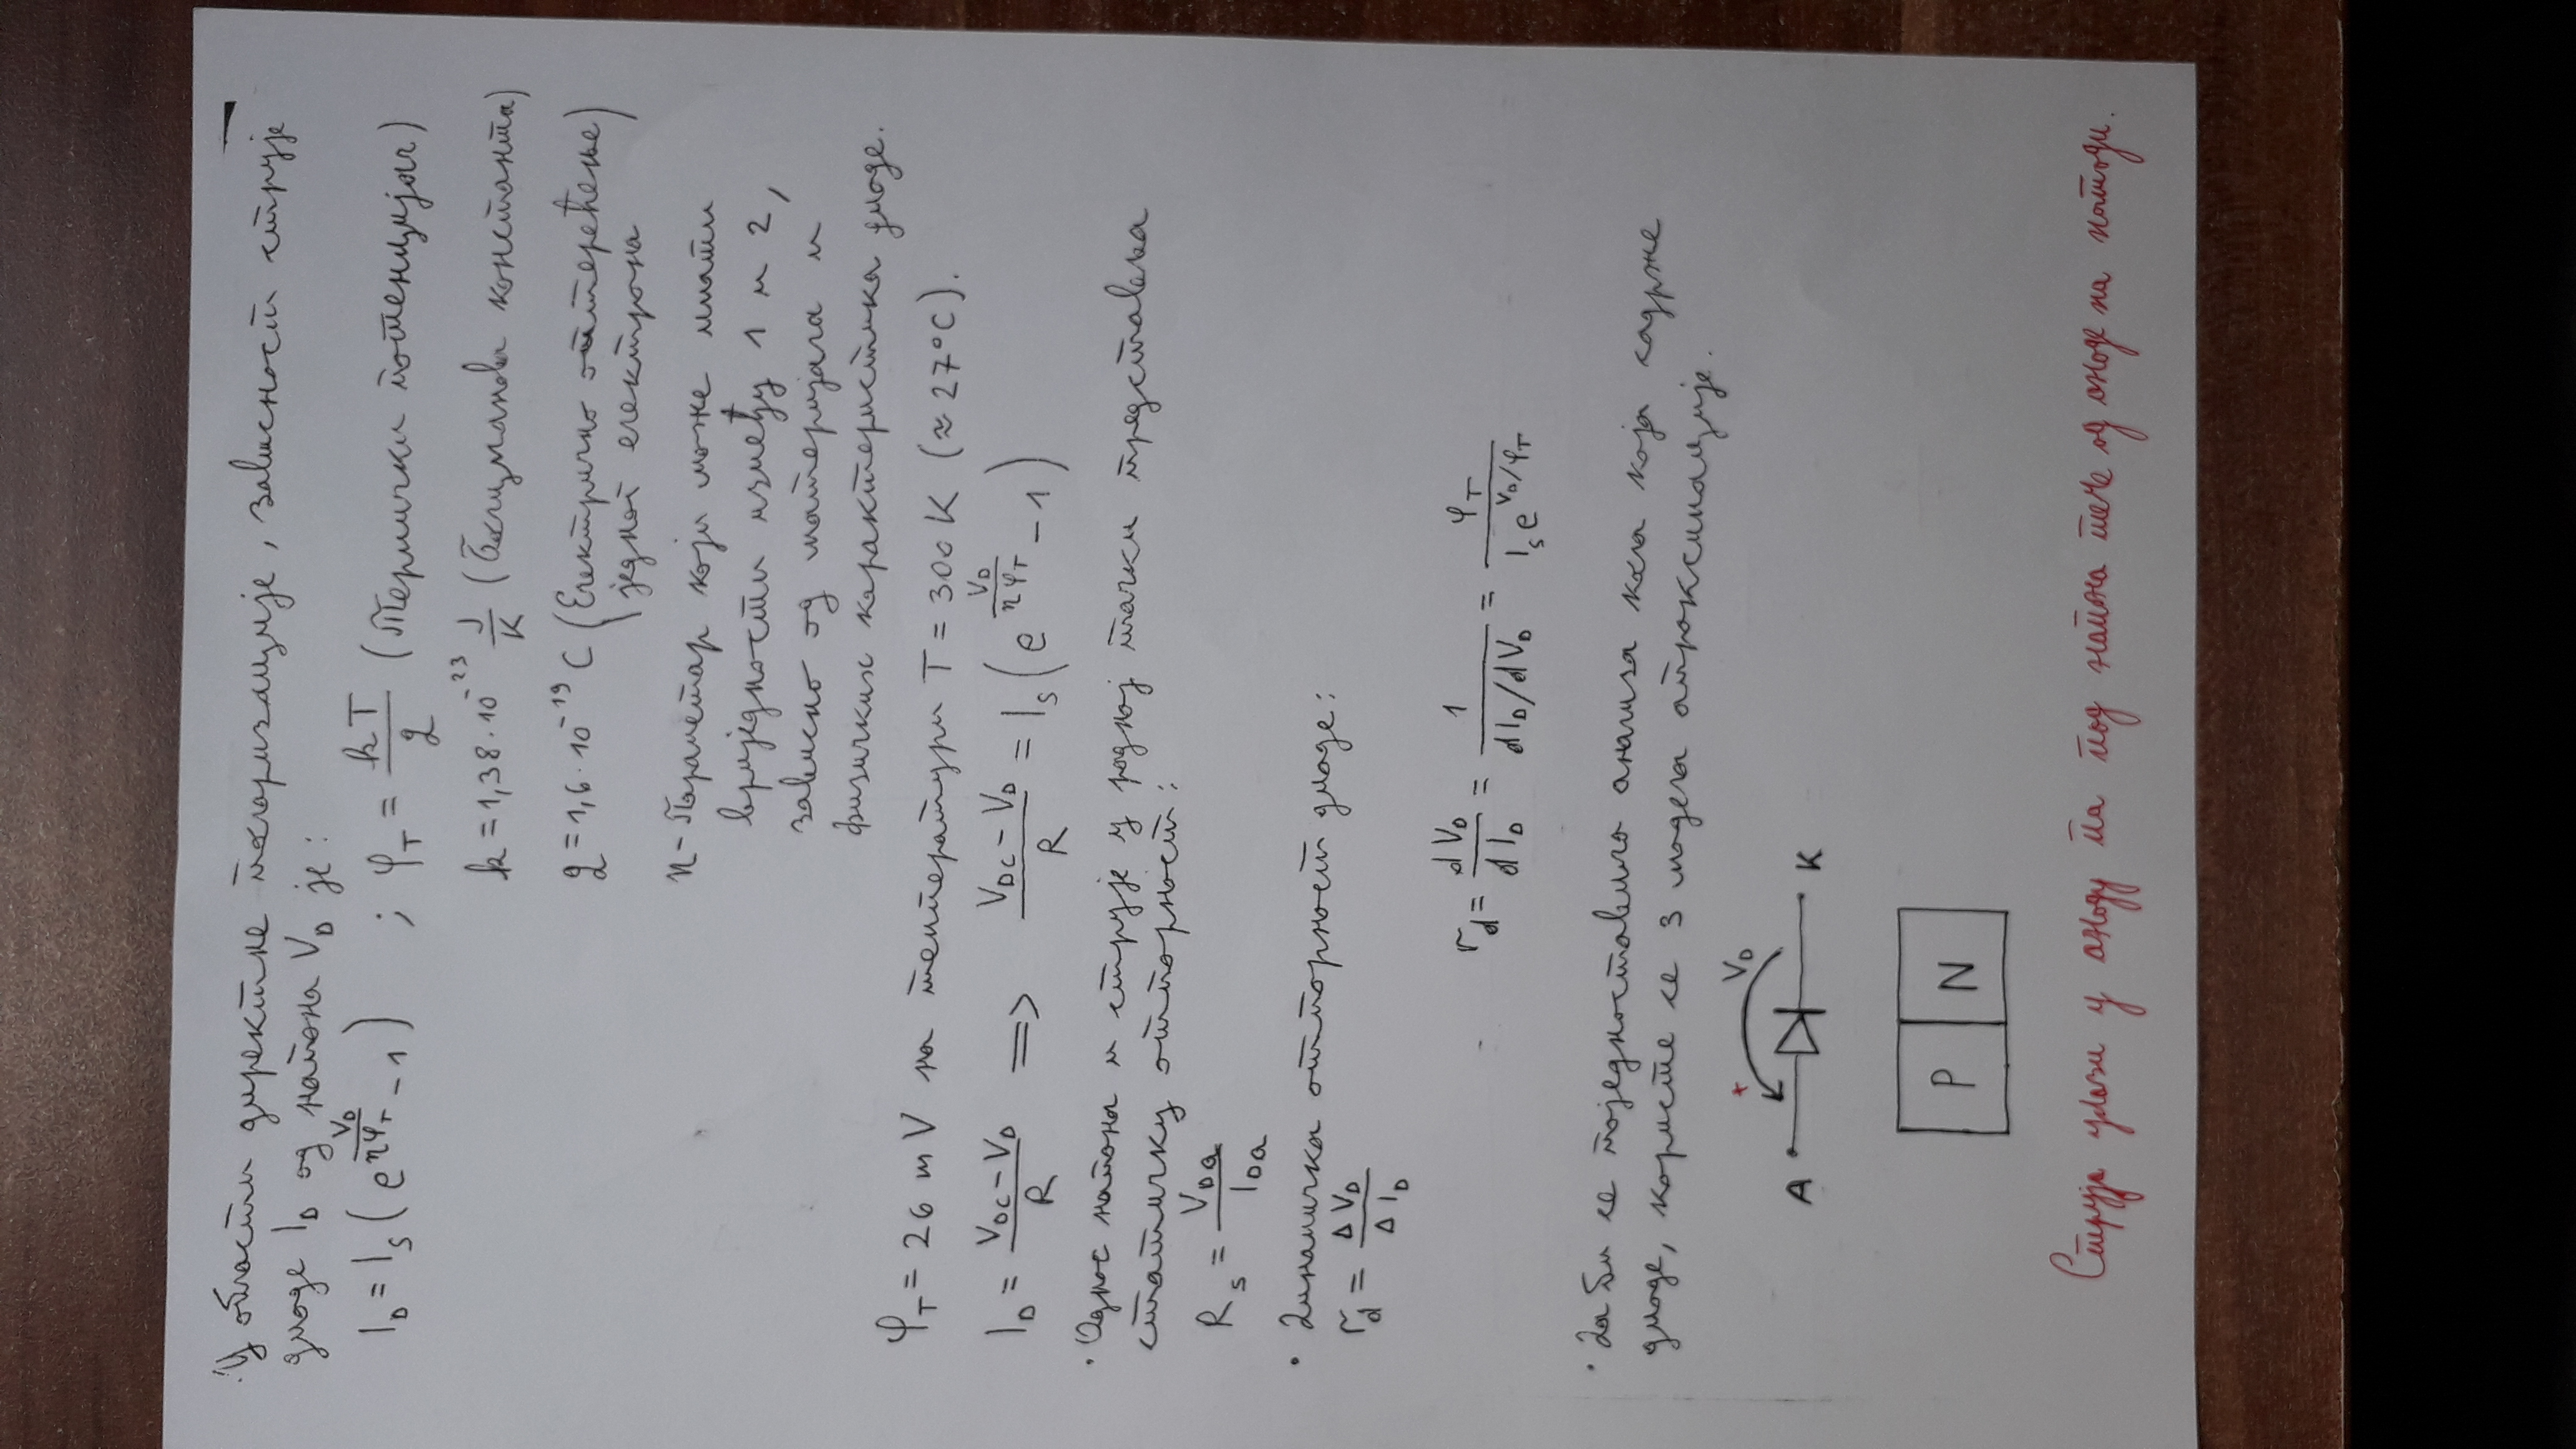 У области директне поларизације, зависност струје
диоде I_D од напона V_D је:
I_D = I_S (e^(V_D/(nφ_T)) - 1) ; φ_T = kT/q (Термички потенцијал)
k = 1,38·10^-23 J/K (Болцманова константа)
q = 1,6·10^-19 C (Електрично оптерећење
једног електрона)
n - Параметар који може имати
вриједности између 1 и 2,
зависно од материјала и
физичких карактеристика диоде.
φ_T = 26 mV на температури T = 300 K (≈ 27°C).
I_D = (V_DC - V_D)/R => (V_DC - V_D)/R = I_S (e^(V_D/(nφ_T)) - 1)
· Однос напона и струје у радној тачки представља
статичку отпорност:
R_S = V_DQ/I_DQ
· Динамичка отпорност диоде:
r_d = ΔV_D/ΔI_D
r_d = dV_D/dI_D = 1/(dI_D/dV_D) = φ_T/(I_S e^(V_D/φ_T))
· Да би се поједноставила анализа кола која садрже
диоде, користе се 3 модела апроксимације.
+ V_D
A K
P N
Струја улази у аноду па пад напона тече од аноде ка катоди.